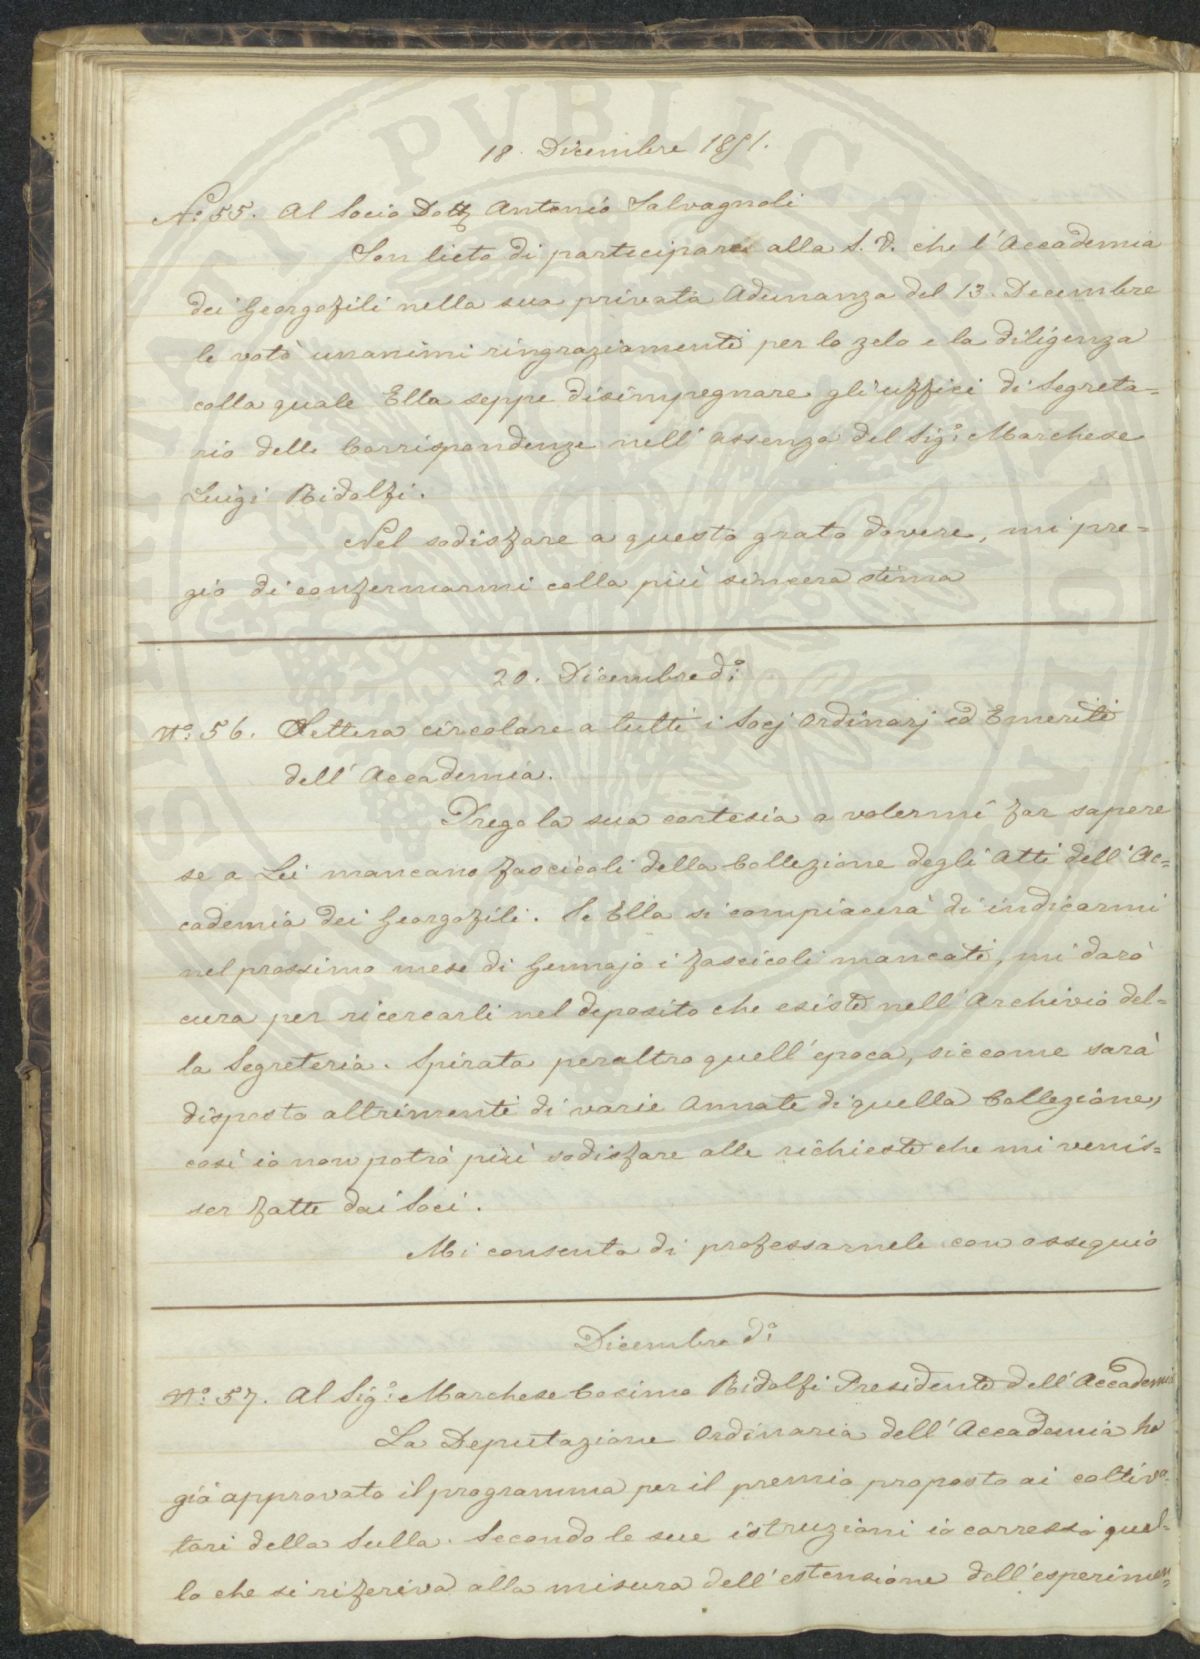 18. Dicembre 1851.
Nº 55. Al Socio Dott Antonio Salvagnoli
Son lieto di participare alla S. V. che l'Accademia
dei Georgofili nella sua privata Adunanza del 13. Decembre
le votò unanimi ringraziamenti per lo zelo e la diligenza
colla quale Ella seppe disimpegnare gli uffici di Segreta=
rio delle Corrispondenze nell'assenza del Sigº: Marchese
Luigi Ridolfi.
Nel sodisfare a questo grato dovere, mi pre=
gio di confermarmi colla più sincera stima
20. Dicembre dº:
Nº: 56. Lettera circolare a tutti i Socj Ordinarj ed Emeriti
dell'Accademia.
Prego la sua cortesia a volermi far sapere
se a Lei mancano fascicoli della Collezione degli Atti dell'Ac=
cademia dei Georgofili. Se Ella si compiacerà di indicarmi
nel prossimo mese di Gennajo i fascicoli mancati, mi darò
cura per ricercarli nel deposito che esiste nell'Archivio del=
la Segreteria. Spirata peraltro quell'epoca, siccome sarà
disposto altrimenti di varie Annate di quella Collezione,
così io non potrò più sodisfare alle richieste che mi venis=
ser fatte dai Soci.
Mi consenta di professarmele con ossequio
Dicembre dº:
Nº: 57. Al Sigº: Marchese Cosimo Ridolfi Presidente dell'Accademia
La Deputazione Ordinaria dell'Accademia ha
già approvato il programma per il premio proposto ai coltiva=
tori della Sulla. Secondo le sue istruzioni io corressi quel=
lo che si riferiva alla misura dell'estensione dell'esperimen=
PUBLIC